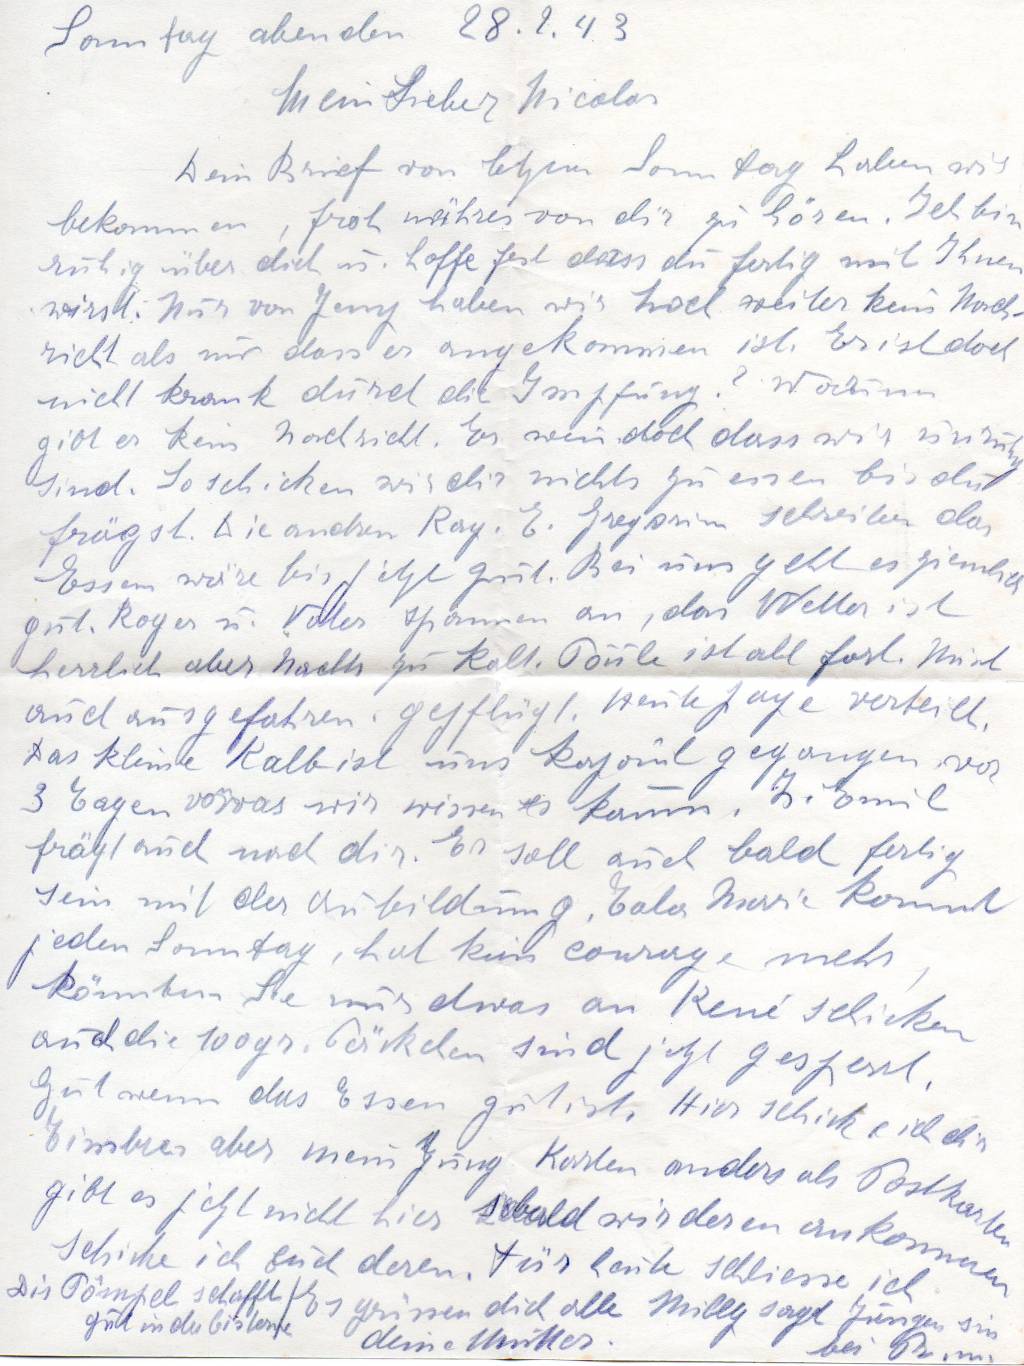 Sonntag abenden 28.2.43
Mein Lieber Nicolas
Dein Brief von letzen Sonntag haben wir
bekommen, froh nähres von dir zu hören. Ich bin
ruhig über dich u. hoffe fest dass du fertig mit Ihnen
wirst. Nur von Jeny haben wir noch weiter kein Nach-
richt als nur dass er angekommen ist. Er ist doch
nicht krank durch die Impfung? Warum
gibt er kein Nachricht. Er weis doch dass wir unruhig
sind. So schicken wir dir nichts zu essen bis du
frägst. Die andren Ray. E. schreiben das
Essen wäre bis jetzt gut. Bei uns geht es ziemlich
gut. Roger u. Vater spannen an, das Wetter ist
herrlich aber Nachts zu kalt. ist all fort. Mist
auch ausgefahren. gepflügt. Heute verteilt.
Das kleine Kalb ist uns kaput gegangen vor
3 Tagen von was wir wissen es kaum. Emil
frägt auch nach dir. Er soll auch bald fertig
sein mit der Aubildung. Marie kommt
jeden Sonntag, hat kein courage mehr,
könnten Sie nur etwas an René schicken
auch die 100gr. Päckchen sind jetzt gesperrt.
Gut wenn das Essen gut ist. Hier schicke ich dir
Timbres aber mein Jung Karten anders als Postkarten
gibt es jetzt nicht hier sobald wir deren ankommen
schicke ich Euch deren. Für heute schliesse ich
Die schafft / Es grüssen dich alle Milly sagt
gut in der Cisterne
deine Mutter. bei